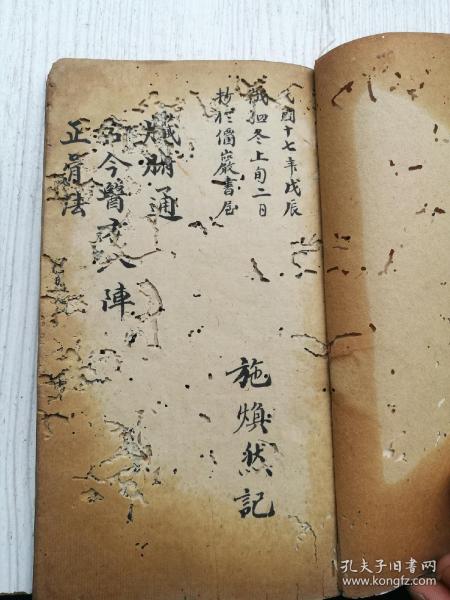 民國十七年戊辰
歲四冬上旬二日
抄於儒巖書屋
施煥然記
通
古今醫 陣
正骨法
孔夫子旧书网
www.kongfz.com